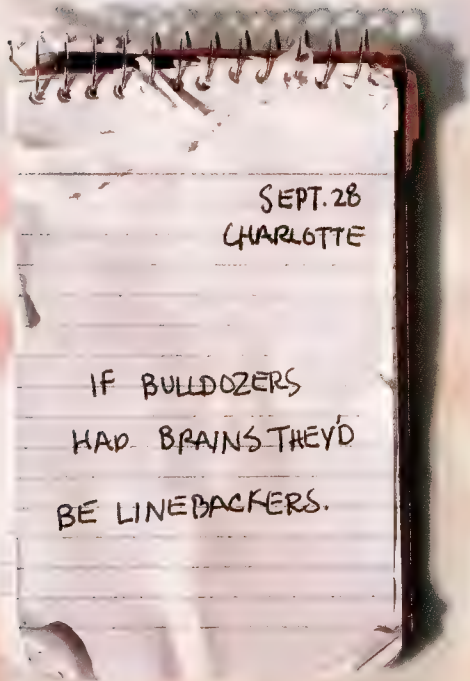 SEPT. 28
CHARLOTTE
IF BULLDOZERS
HAD BRAINS THEY'D
BE LINEBACKERS.